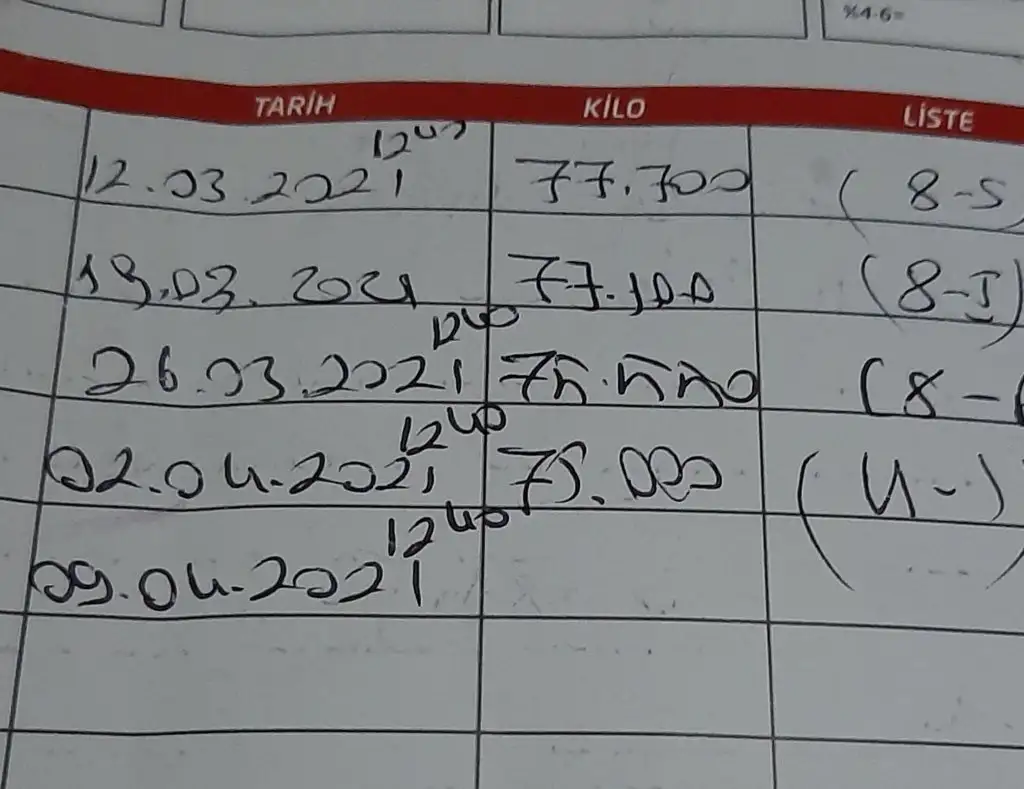 %4-6=
TARİH KİLO LİSTE
12.03.2021 12⁴⁰ 77.700 (8-5
19.03.2021 77.100 (8-I)
26.03.2021 12⁴⁰ 75.550 (8-
02.04.2021 12⁴⁰ 75.000 (4-)
09.04.2021 12⁴⁰